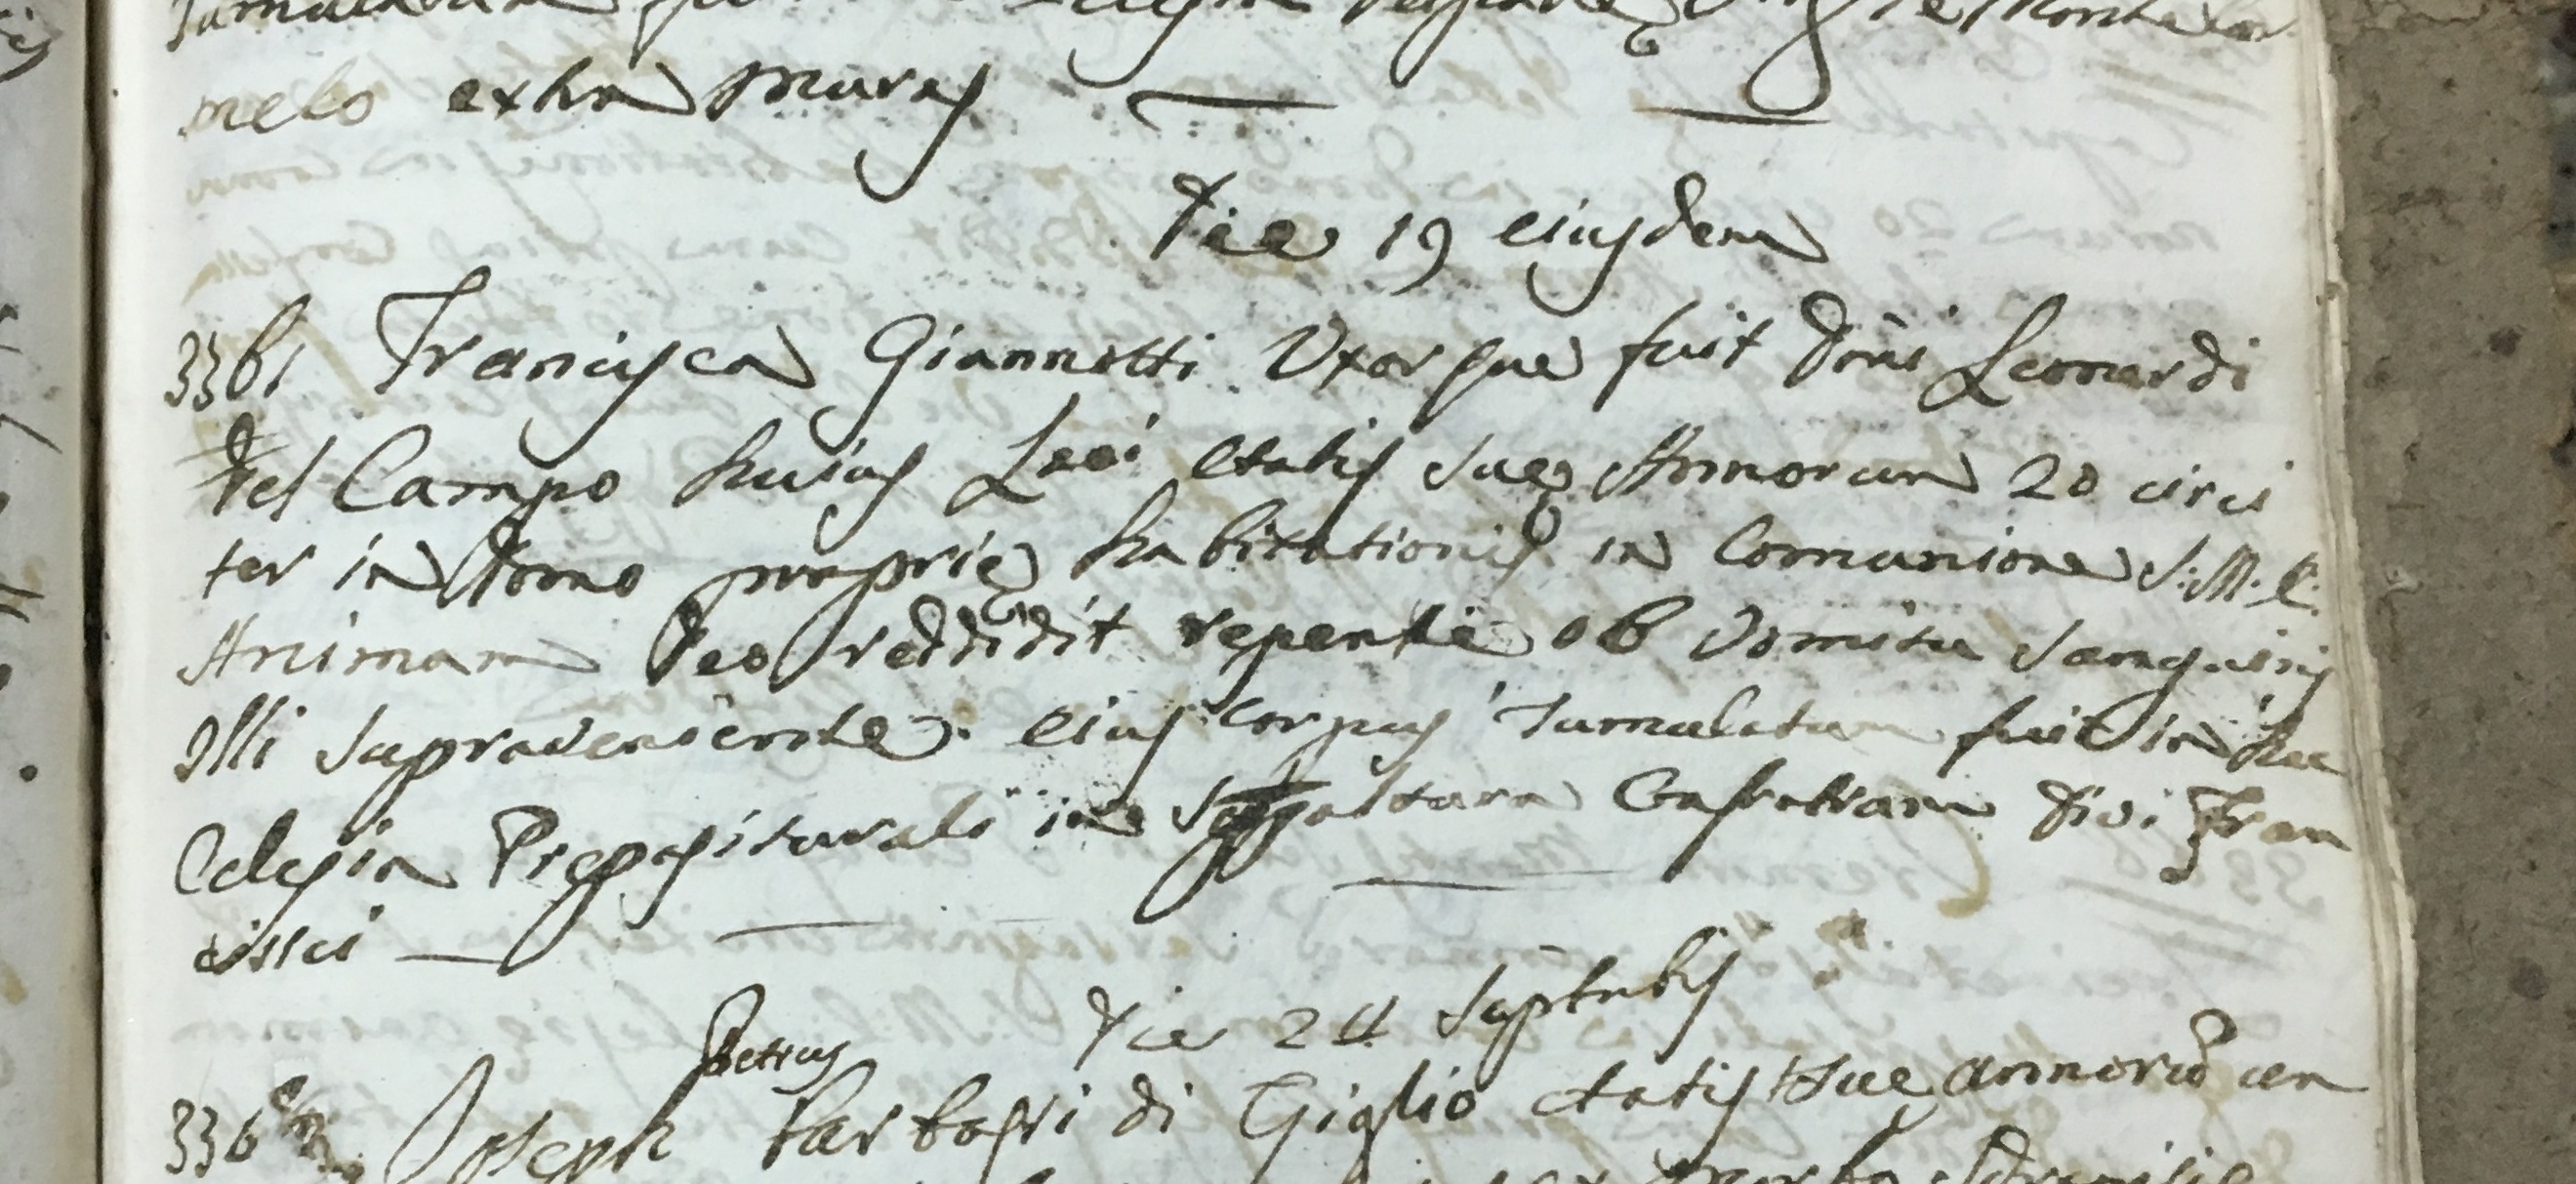 melo extra muros
Die 19 eiusdem
3361 Francisca Giannotti Uxorque fuit Dñi Leonardi
del Campo huius Loci etatis sue Annorum 20 circi
ter in domo proprie habitationis in Comunione S: M. E.
Animam Deo reddidit repente ob vomitu sanguinis
Illi supraveniente. eius corpus Tumulatum fuit in hac
Eclesia Prepositurali in Sepolturam Confratrum Divi Fran
cissci
Die 24 Septēbis
Petrus
336 Joseph Barbagri di Giglio etatis sue annorũ cen